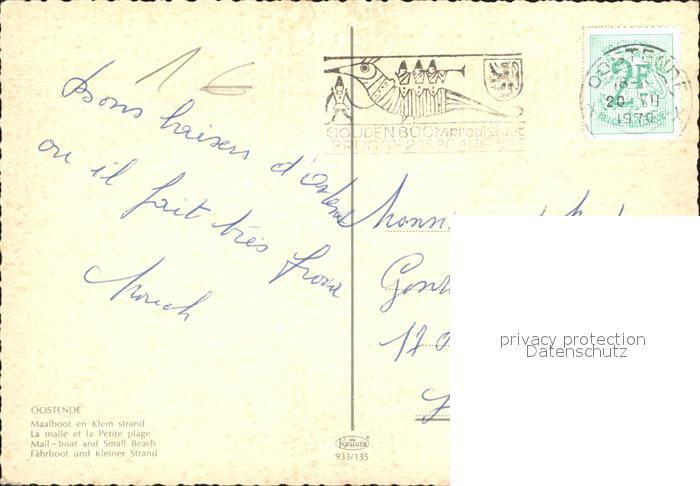 1 €
Bons baisers d'Ostende
ou il fait très froid
GOUDEN BOOM praalstoet
BRUGGE 23 & 30 AUG
OOSTENDE
20 VII
1970
2F
BELGIE-BELGIQUE
17
privacy protection
Datenschutz
OOSTENDE
Maalboot en Klein strand
La malle et la Petite plage
Mail-boat and Small Beach
Fährboot und Kleiner Strand
KRÜGER
933/135